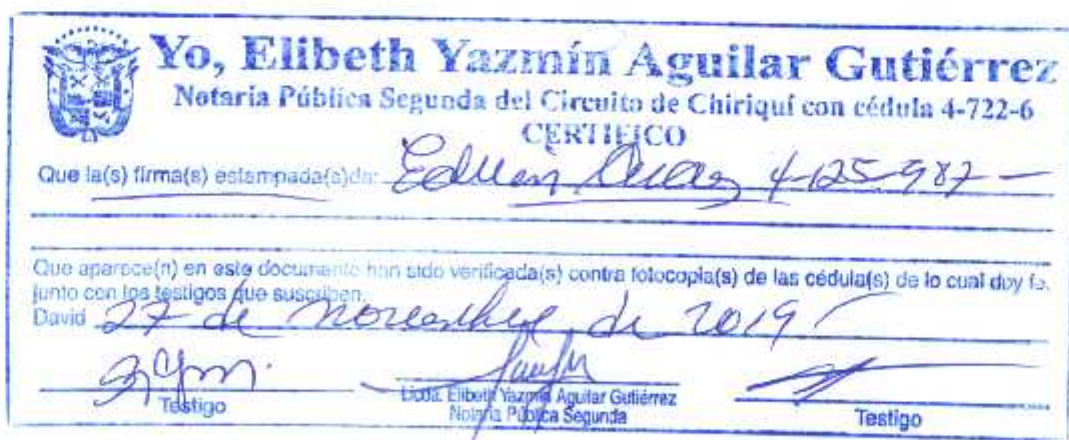 Yo, Elibeth Yazmín Aguilar Gutiérrez
Notaria Pública Segunda del Circuito de Chiriquí con cédula 4-722-6
CERTIFICO
Que la(s) firma(s) estampada(s)de: 4-125-987
Que aparece(n) en este documento han sido verificada(s) contra fotocopia(s) de las cédula(s) de lo cual doy fe,
junto con los testigos que suscriben.
David 27 de noviembre de 2019
Testigo
Licda. Elibeth Yazmín Aguilar Gutiérrez
Notaria Pública Segunda
Testigo